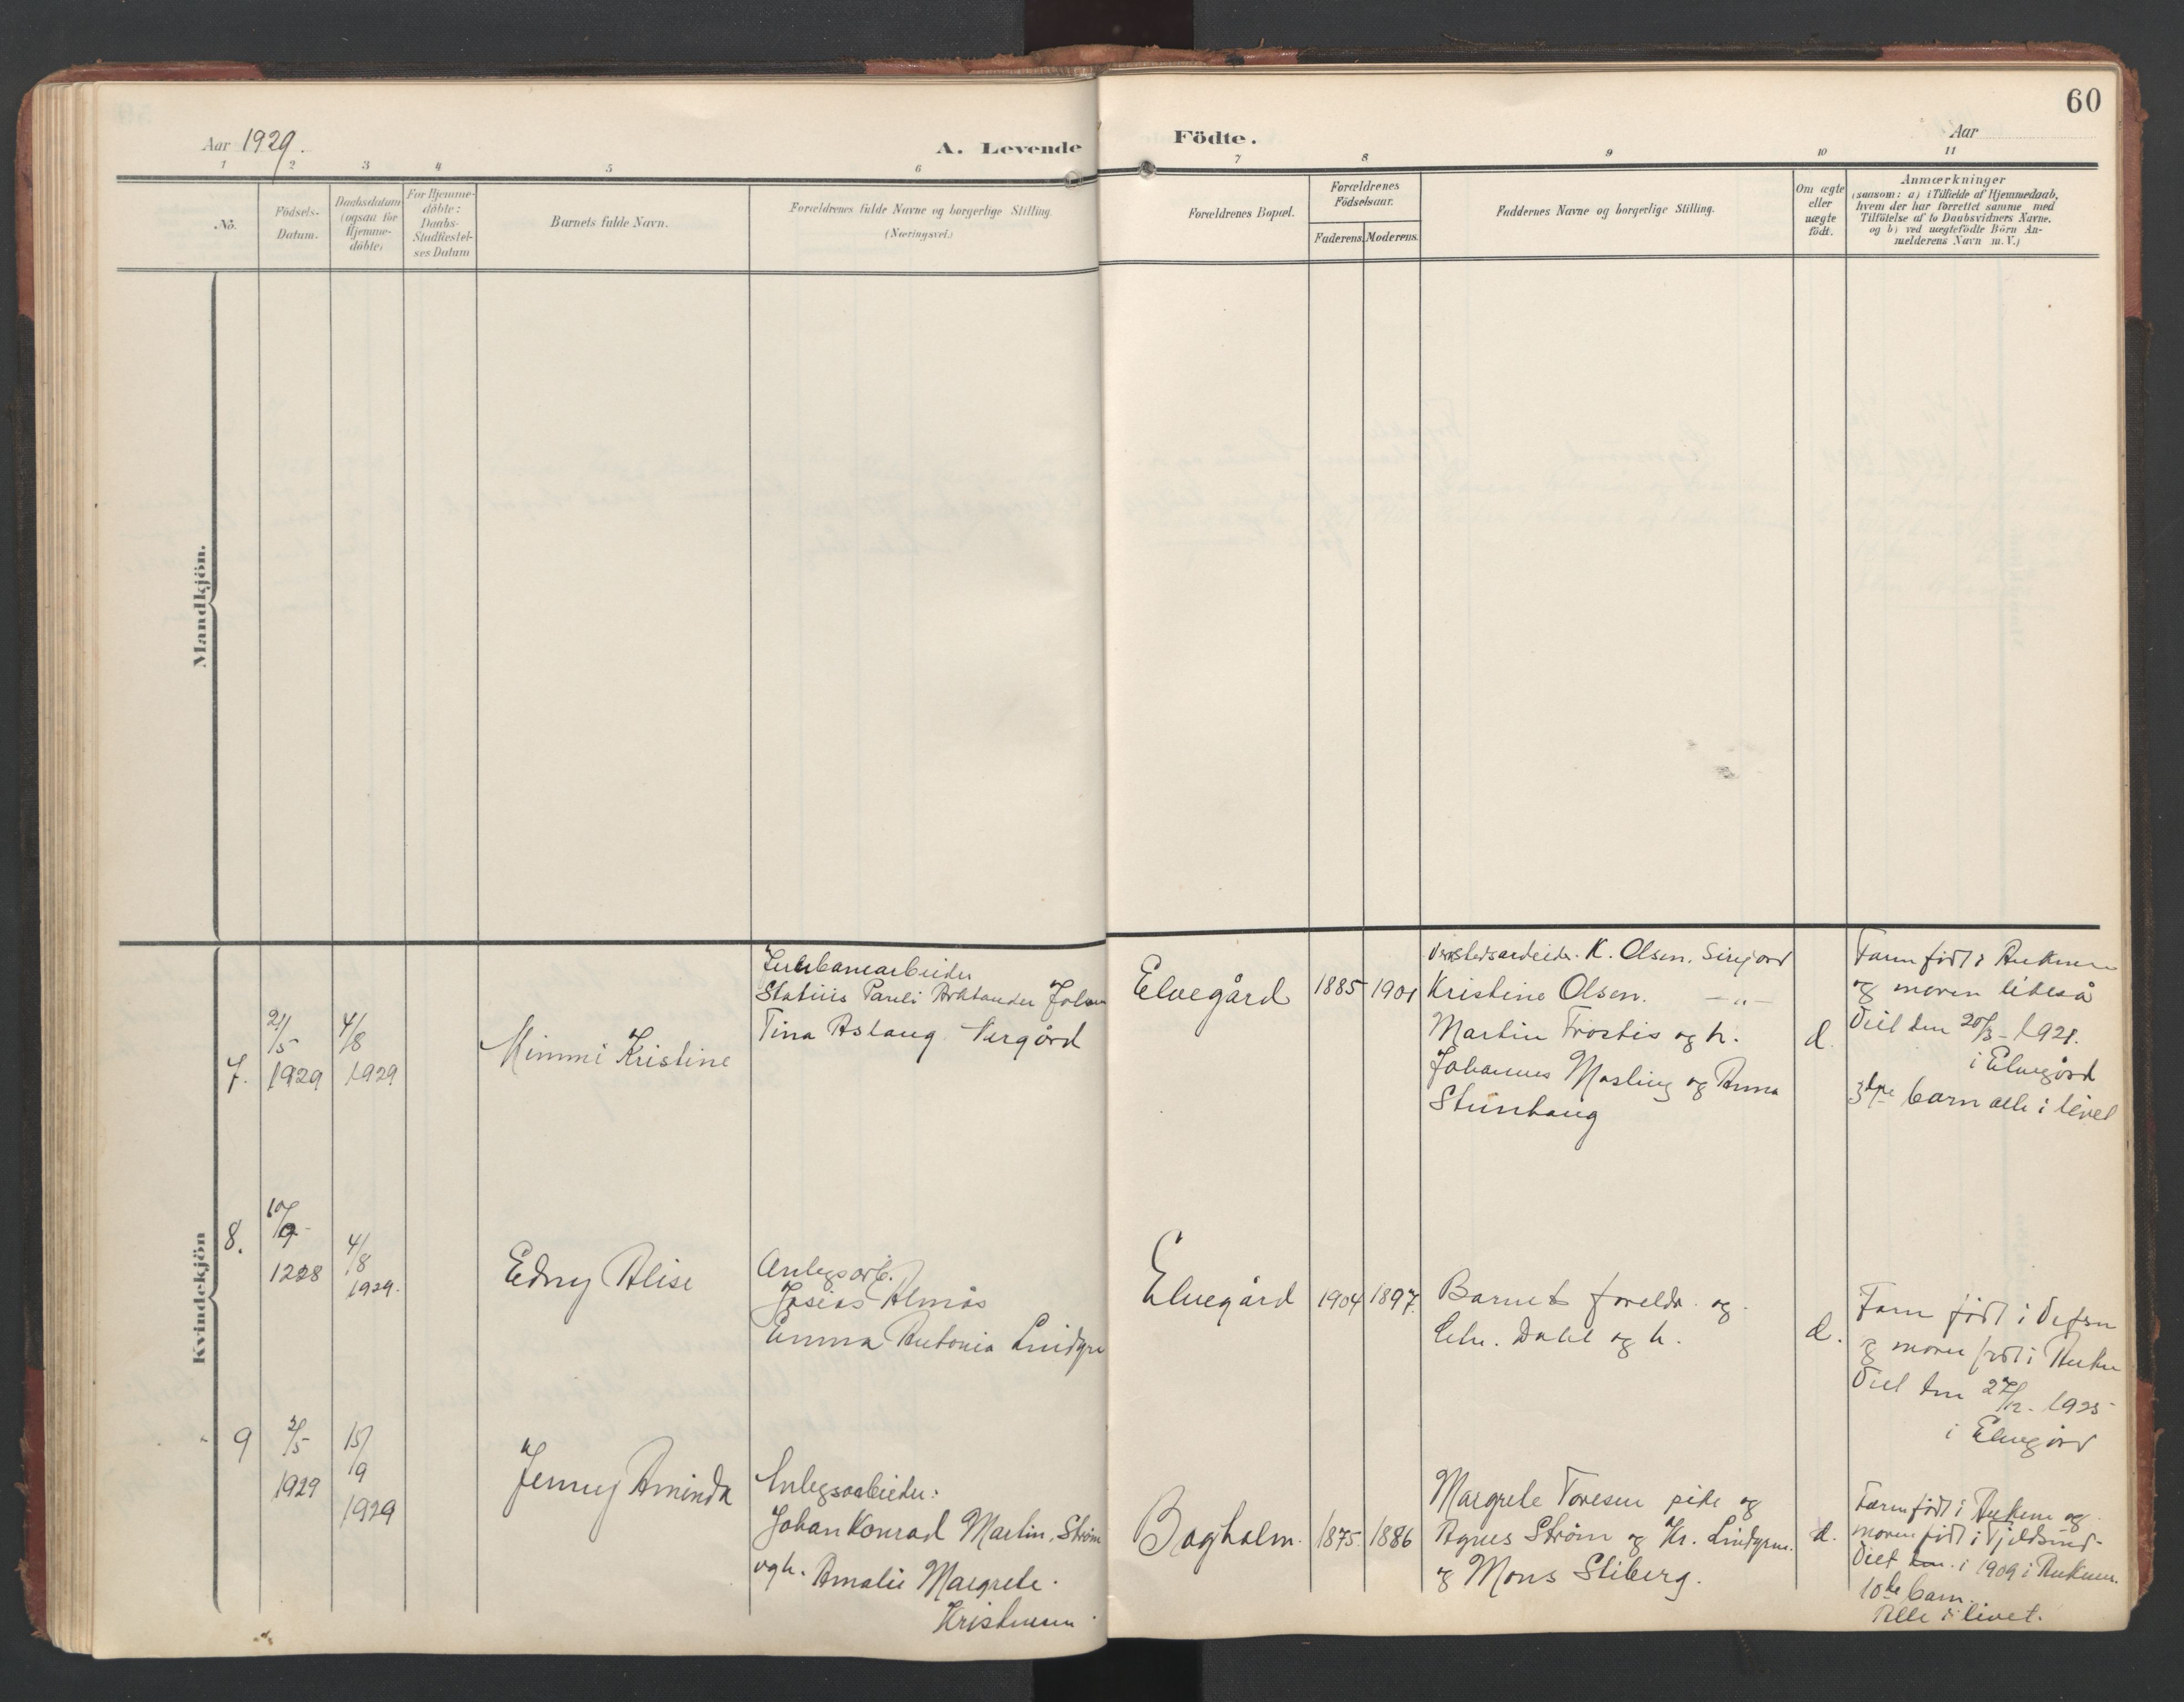 60
Aar 1929.
A. Levende Födte.
Aar
1 2 3 4 5 6 7 8 9 10 11
No.
Födsels-
Datum.
Daabsdatum
(ogsaa for
Hjemme-
döbte)
For Hjemme-
döbte:
Daabs-
Stadfæstel-
ses Datum
Barnets fulde Navn.
Forældrenes fulde Navne og borgerlige Stilling.
(Næringsvei.)
Forældrenes Bopæl.
Forældrenes
Födselsaar.
Faderens. Moderens.
Faddernes Navne og borgerlige Stilling.
Om ægte
eller
uægte
födt.
Anmærkninger
(saasom: a) i Tilfælde af Hjemmedaab,
hvem der har forrettet samme med
Tilföielse af to Daabsvidners Navne,
og b) ved uægtefödte Börn An-
melderens Navn m. V.)
Mandkjön.
Kvindekjön
7.
21/5
1929
4/8
1929
Mimmi Kristine
Statius Pauli Arktander
Tina Aslaug
Elvegård
1885
1901
K. Olsen.
Kristine Olsen. —„—
Martin Trostis og h.
Johannes og Anna
Steinhaug
d.
Faren født i Ankenes
og moren likeså
Viet den 20/3-1921.
i Elvegård
3dje barn alle i livet
8.
10/9
1228
4/8
1929.
Edny Alise
Anlegsarb.
Josias Almås
Emma Antonia
Elvegård
1904
1897.
Barnets foreldr. og
Chr. Dahl og h.
d.
Faren født i Vefsn
og moren født i
Viet den 27/12-1925
i Elvegård
9
2/5
1929
15/9
1929
Jenny Aminda
Anlegsarbeider:
Johan Konrad Martin Strøm
og h. Amalie Margrete
Bogholm.
1875.
1886
Margrete Toresen pike og
Agnes Strøm og Kr. Lindgren.
og Mons Stiberg.
d.
Faren født i Ankenes og
moren født i Tjeldsund
Viet den. i 1909 i Ankenes.
10de barn.
Alle i livet.